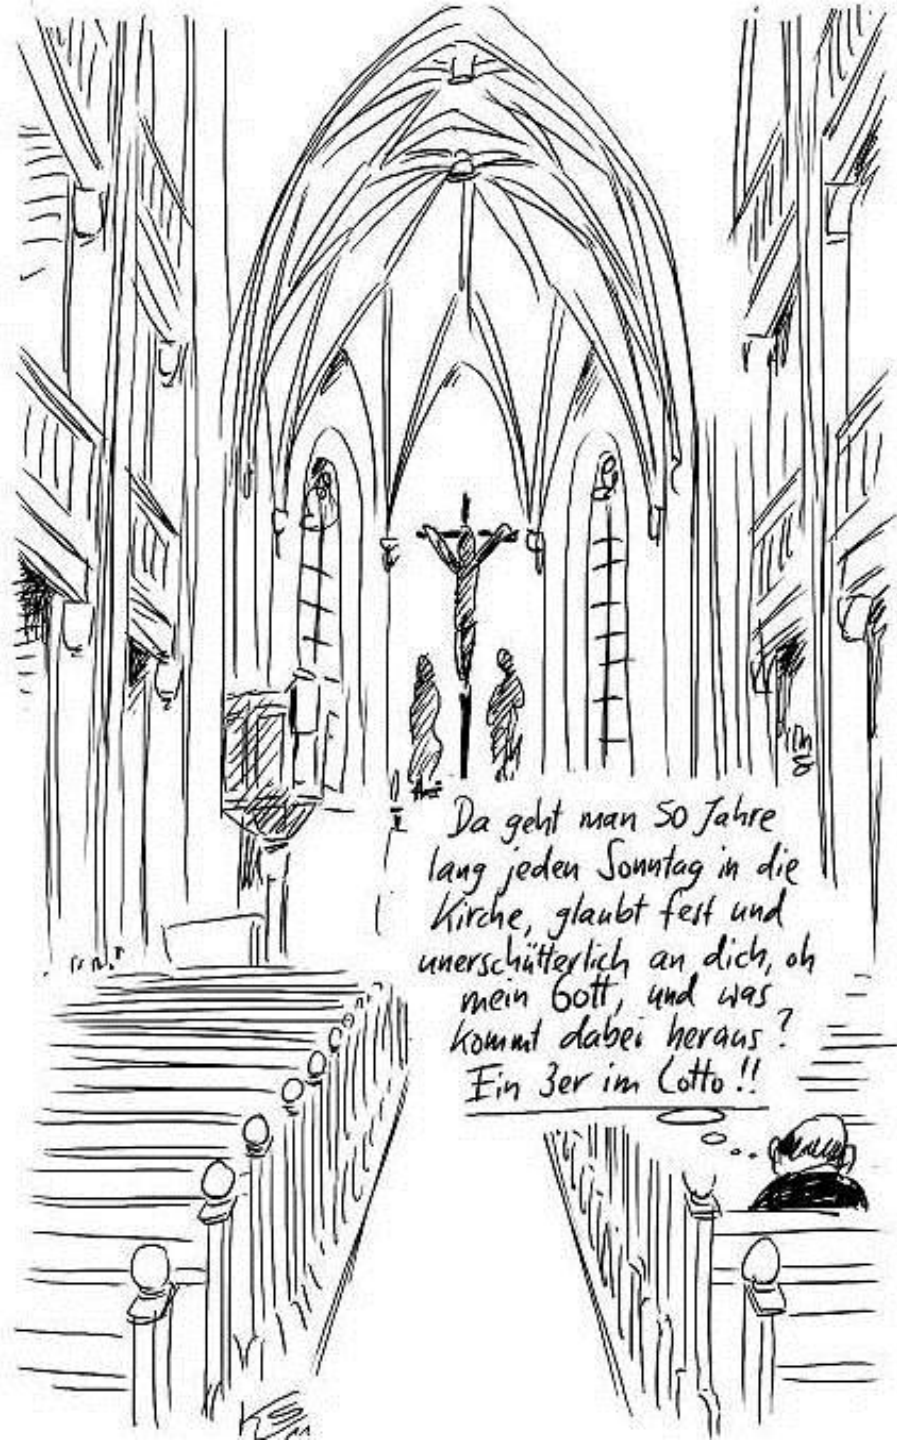 Da geht man 50 Jahre
lang jeden Sonntag in die
Kirche, glaubt fest und
unerschütterlich an dich, oh
mein Gott, und was
kommt dabei heraus?
Ein 3er im Lotto!!